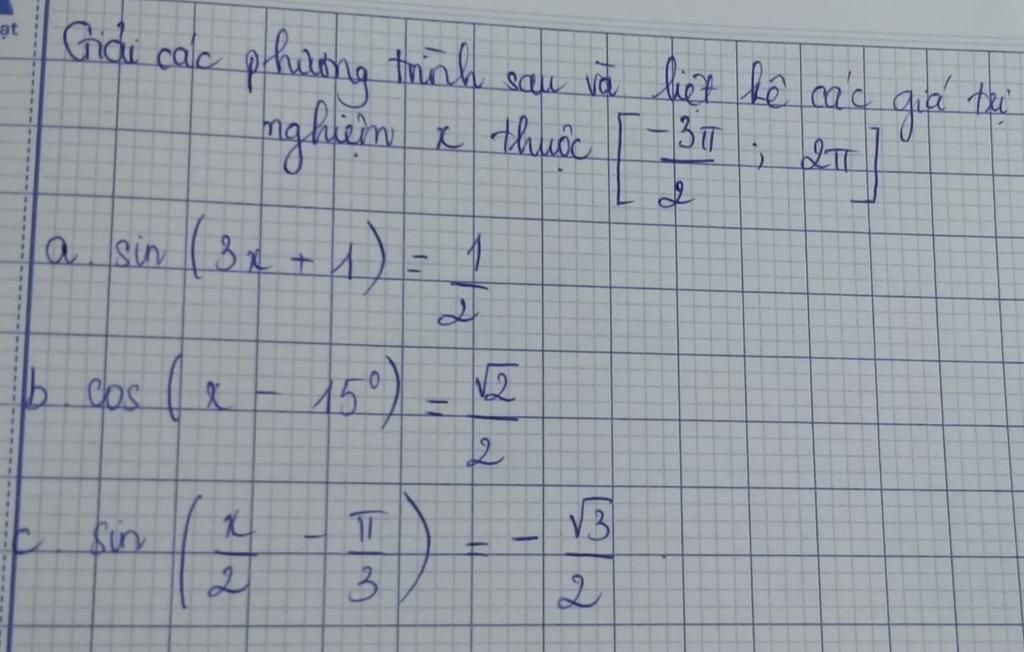 ạt
Giải các phương trình sau và liệt kê các giá trị
nghiệm x thuộc [-3π/2 ; 2π]
a. sin (3x + 1) = 1/2
b. cos (x - 15°) = √2/2
c sin (x/2 - π/3) = - √3/2.